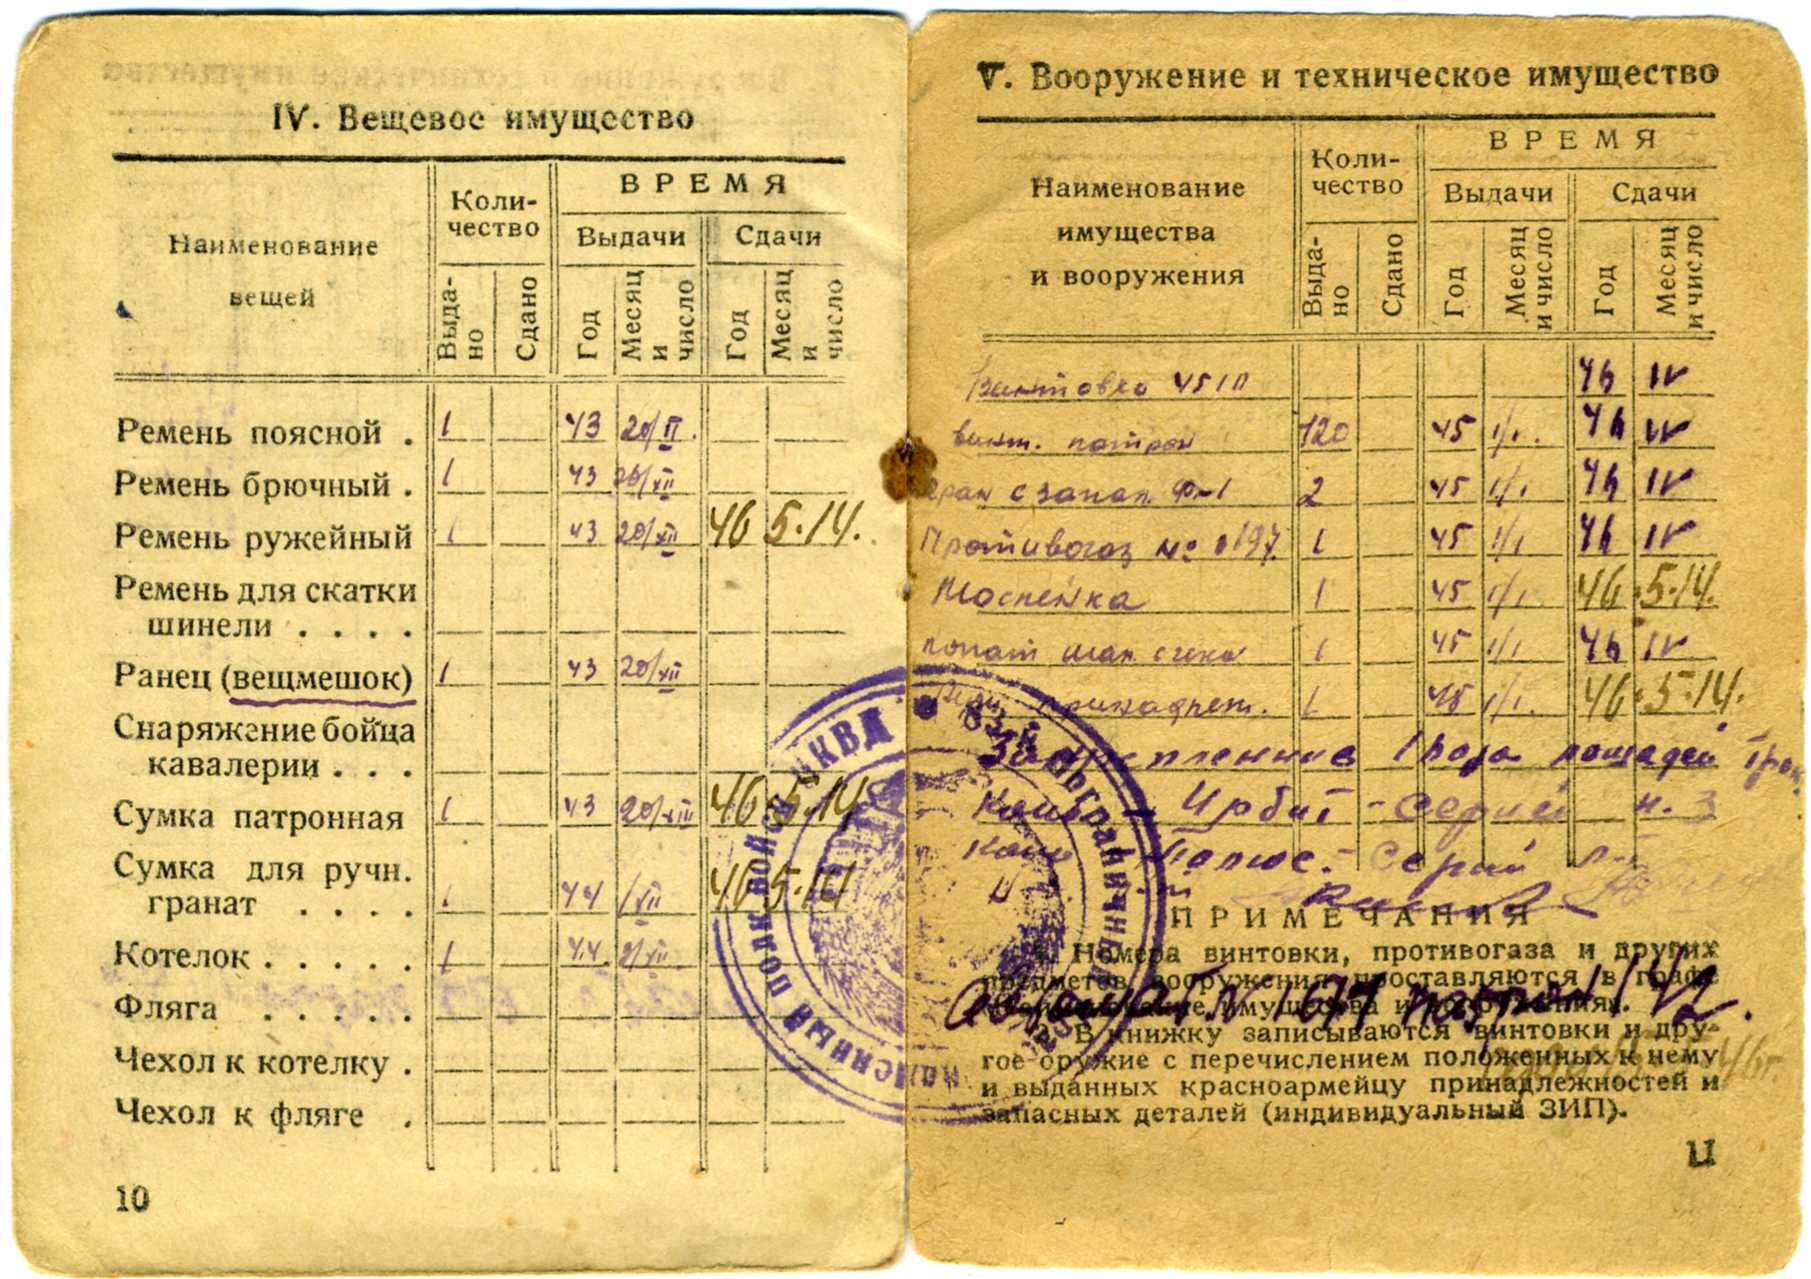 IV. Вещевое имущество
Наименование вещей
Коли-
чество
ВРЕМЯ
Выдачи
Сдачи
Выда-
но
Сдано
Год
Месяц и число
Год
Месяц и число
Ремень поясной . 1 43 20/II.
Ремень брючный . 1 43 20/XII
Ремень ружейный 1 43 20/XII 46 5.14.
Ремень для скатки
шинели . . . .
Ранец (вещмешок) 1 43 20/XII
Снаряжение бойца
кавалерии . . .
Сумка патронная 1 43 20/XII 46 5.14
Сумка для ручн.
гранат . . . . 1 44 1/XII 46 5.14
Котелок . . . . . 1 44 2/XII
Фляга . . . . .
Чехол к котелку .
Чехол к фляге .
10
V. Вооружение и техническое имущество
Наименование
имущества
и вооружения
Коли-
чество
ВРЕМЯ
Выдачи
Сдачи
Выда-
но
Сдано
Год
Месяц и число
Год
Месяц и число
Винтовка 46 IV
винт. патрон 120 45 1/1. 46 IV
гран с запал Ф-1 2 45 1/1 46 IV
Противогаз № 1 45 1/1 46 IV
1 45 1/1 46 5.14.
лопат 1 45 1/1 46 IV
принадлеж. 1 45 1/1. 46 5.14.
лошадей
Конь - Ирбит - Серый н. 3
Конь - Серый
ПРИМЕЧАНИЯ
1. Номера винтовки, противогаза и других
предметов вооружения проставляются в графе
«Наименование имущества и вооружения».
2. В книжку записываются винтовки и дру-
гое оружие с перечислением положенных к нему
и выданных красноармейцу принадлежностей и
запасных деталей (индивидуальный ЗИП).
11
полк войск НКВД
пограничный